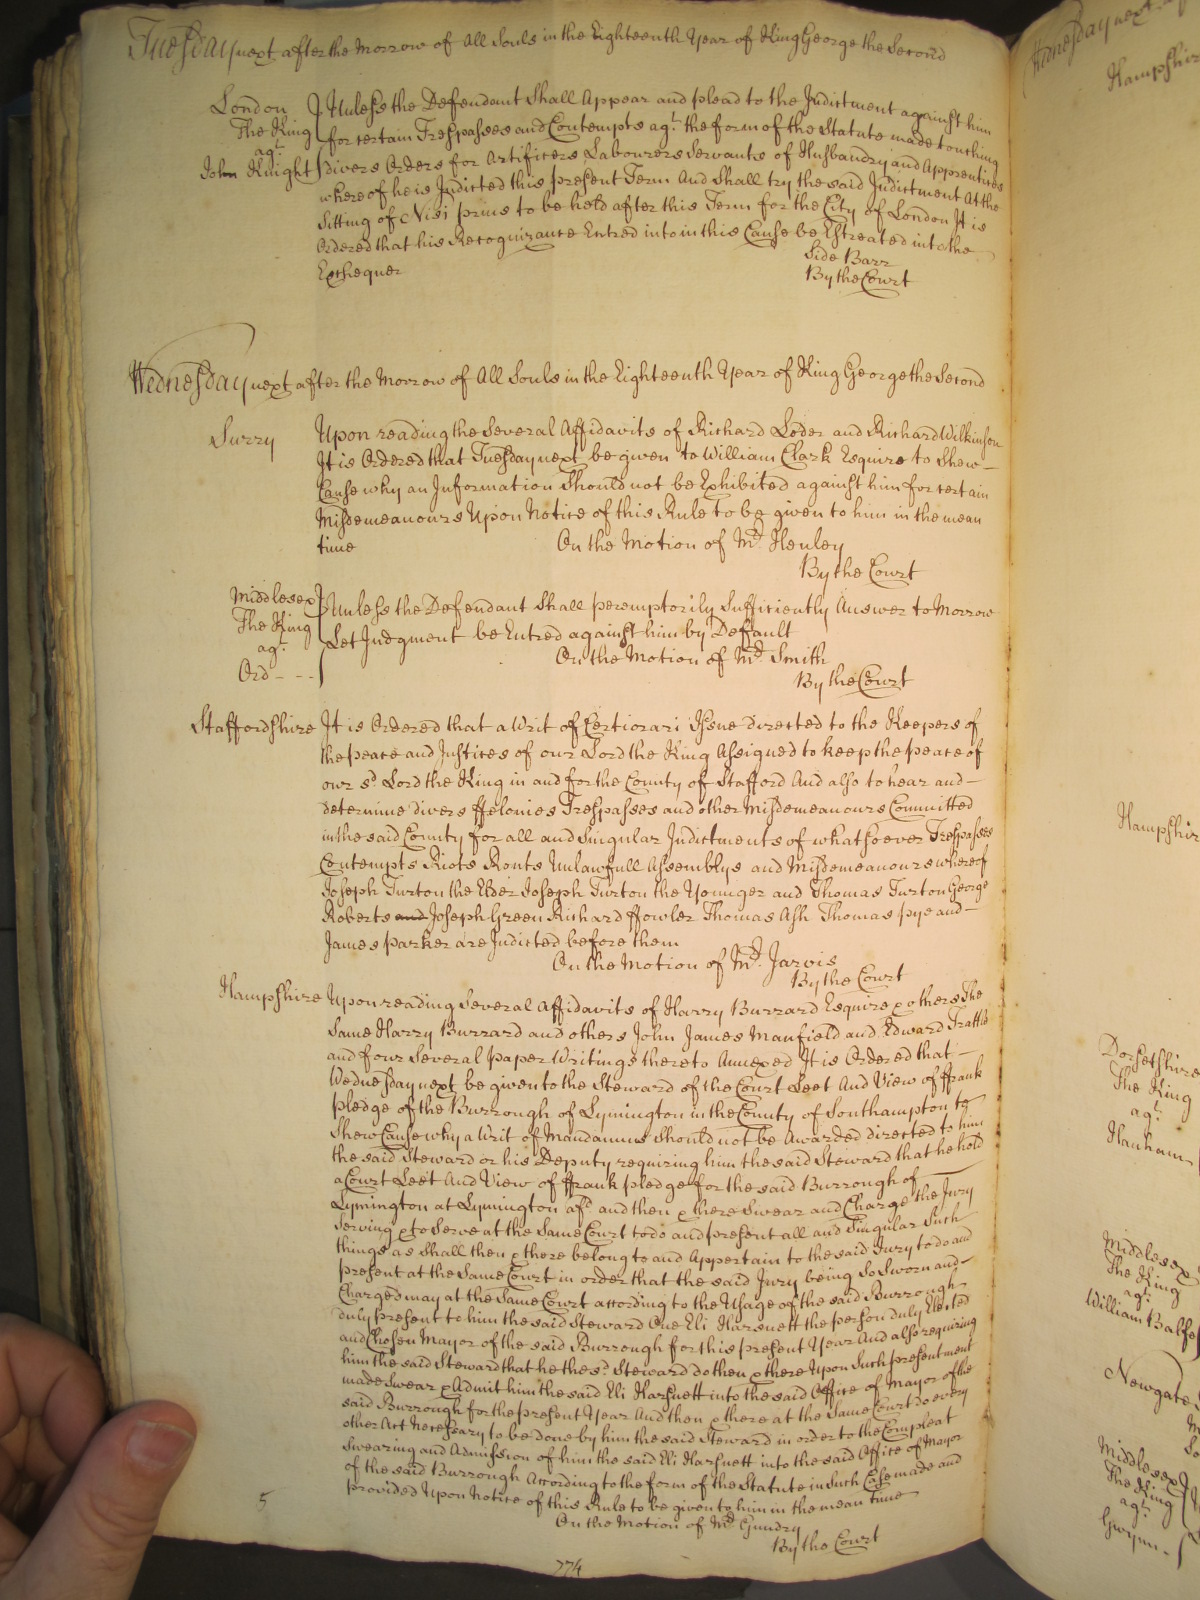 Tuesday next after the Morrow of All Souls in the Eighteenth Year of King George the Second
London
The King
agt.
John Knight
Unless the Defendant Shall Appear and plead to the Indictment against him
for certain Trespasses and Contempts agt. the form of the Statute made touching
divers Orders for Artificers Labourers Servants of Husbandry and Apprentices
whereof he is Indicted this present Term And Shall try the said Indictment At the
Sitting of Nisi prius to be held after this Term for the City of London It is
Ordered that his Recognizance Entred into in this Cause be Estreated into the
Exchequer
Side Barr
By the Court
Wednesday next after the Morrow of All Souls in the Eighteenth Year of King George the Second
Surry
Upon reading the Several Affidavits of Richard Loder and Richard Wilkinson
It is Ordered that Tuesday next be given to William Clark Esquire to Shew
Cause why an Information Should not be Exhibited against him for certain
Misdemeanours Upon Notice of this Rule to be given to him in the mean
time
On the Motion of Mr. Henley
By the Court
Middlesex
The King
agt.
Ord - - -
Unless the Defendant Shall peremptorily Sufficiently Answer to Morrow
Let Judgment be Entred against him by Default
On the Motion of Mr. Smith
By the Court
Staffordshire It is Ordered that a Writ of Certiorari Issue directed to the Keepers of
the peace and Justices of our Lord the King Assigned to keep the peace of
our sd. Lord the King in and for the County of Stafford And also to hear and
determine divers ffelonies Trespasses and other Misdemeanours Committed
in the said County for all and Singular Indictments of whatsoever Trespasses
Contempts Riots Routs Unlawfull Assemblys and Misdemeanours whereof
Joseph Turton the Elder Joseph Turton the Younger and Thomas Turton George
Roberts and Joseph Green Richard ffowler Thomas Ash Thomas pye and
James parker are Indicted before them
On the Motion of Mr. Jarvis
By the Court
Hampshire Upon reading Several Affidavits of Harry Burrard Esquire & others The
Same Harry Burrard and others John James Manfield and Edward Trattle
and four Several paper Writings thereto Annexed It is Ordered that
Wednesday next be given to the Steward of the Court Leet And View of ffrank
pledge of the Burrough of Lymington in the County of Southampton to
Shew Cause why a Writ of Mandamus Should not be Awarded directed to him
the said Steward or his Deputy requiring him the said Steward that he hold
a Court Leet And View of ffrank pledge for the said Burrough of
Lymington at Lymington afd. and then & there Swear and Charge the Jury
Serving & to Serve at the Same Court to do and present all and Singular Such
things as Shall then & there belong to and Appertain to the said Jury to do and
present at the Same Court in order that the said Jury being So Sworn and
Charged may at the Same Court according to the Usage of the said Burrough
duly present to him the said Steward One Eli Harsnett the person duly Elected
and Chosen Mayor of the said Burrough for this present Year And also requiring
him the said Steward that he the sd. Steward do then & there Upon Such presentment
made Swear & Admit him the said Eli Harsnett into the said Office of Mayor of the
said Burrough for the present Year And then & there at the Same Court do every
other Act Necessary to be done by him the said Steward in order to the Compleat
Swearing and Admission of him the said Eli Harsnett into the said Office of Mayor
of the said Burrough According to the form of the Statute in Such Case made and
provided Upon Notice of this Rule to be given to him in the mean time
On the Motion of Mr. Gundry
By the Court
5
774
Wednesday next
Hampshire
Hampshire
Dorsetshire
The King
agt.
Hanham
Middlesex
The King
agt.
William
Newgate
Middlesex
The King
agt.
Gwynn